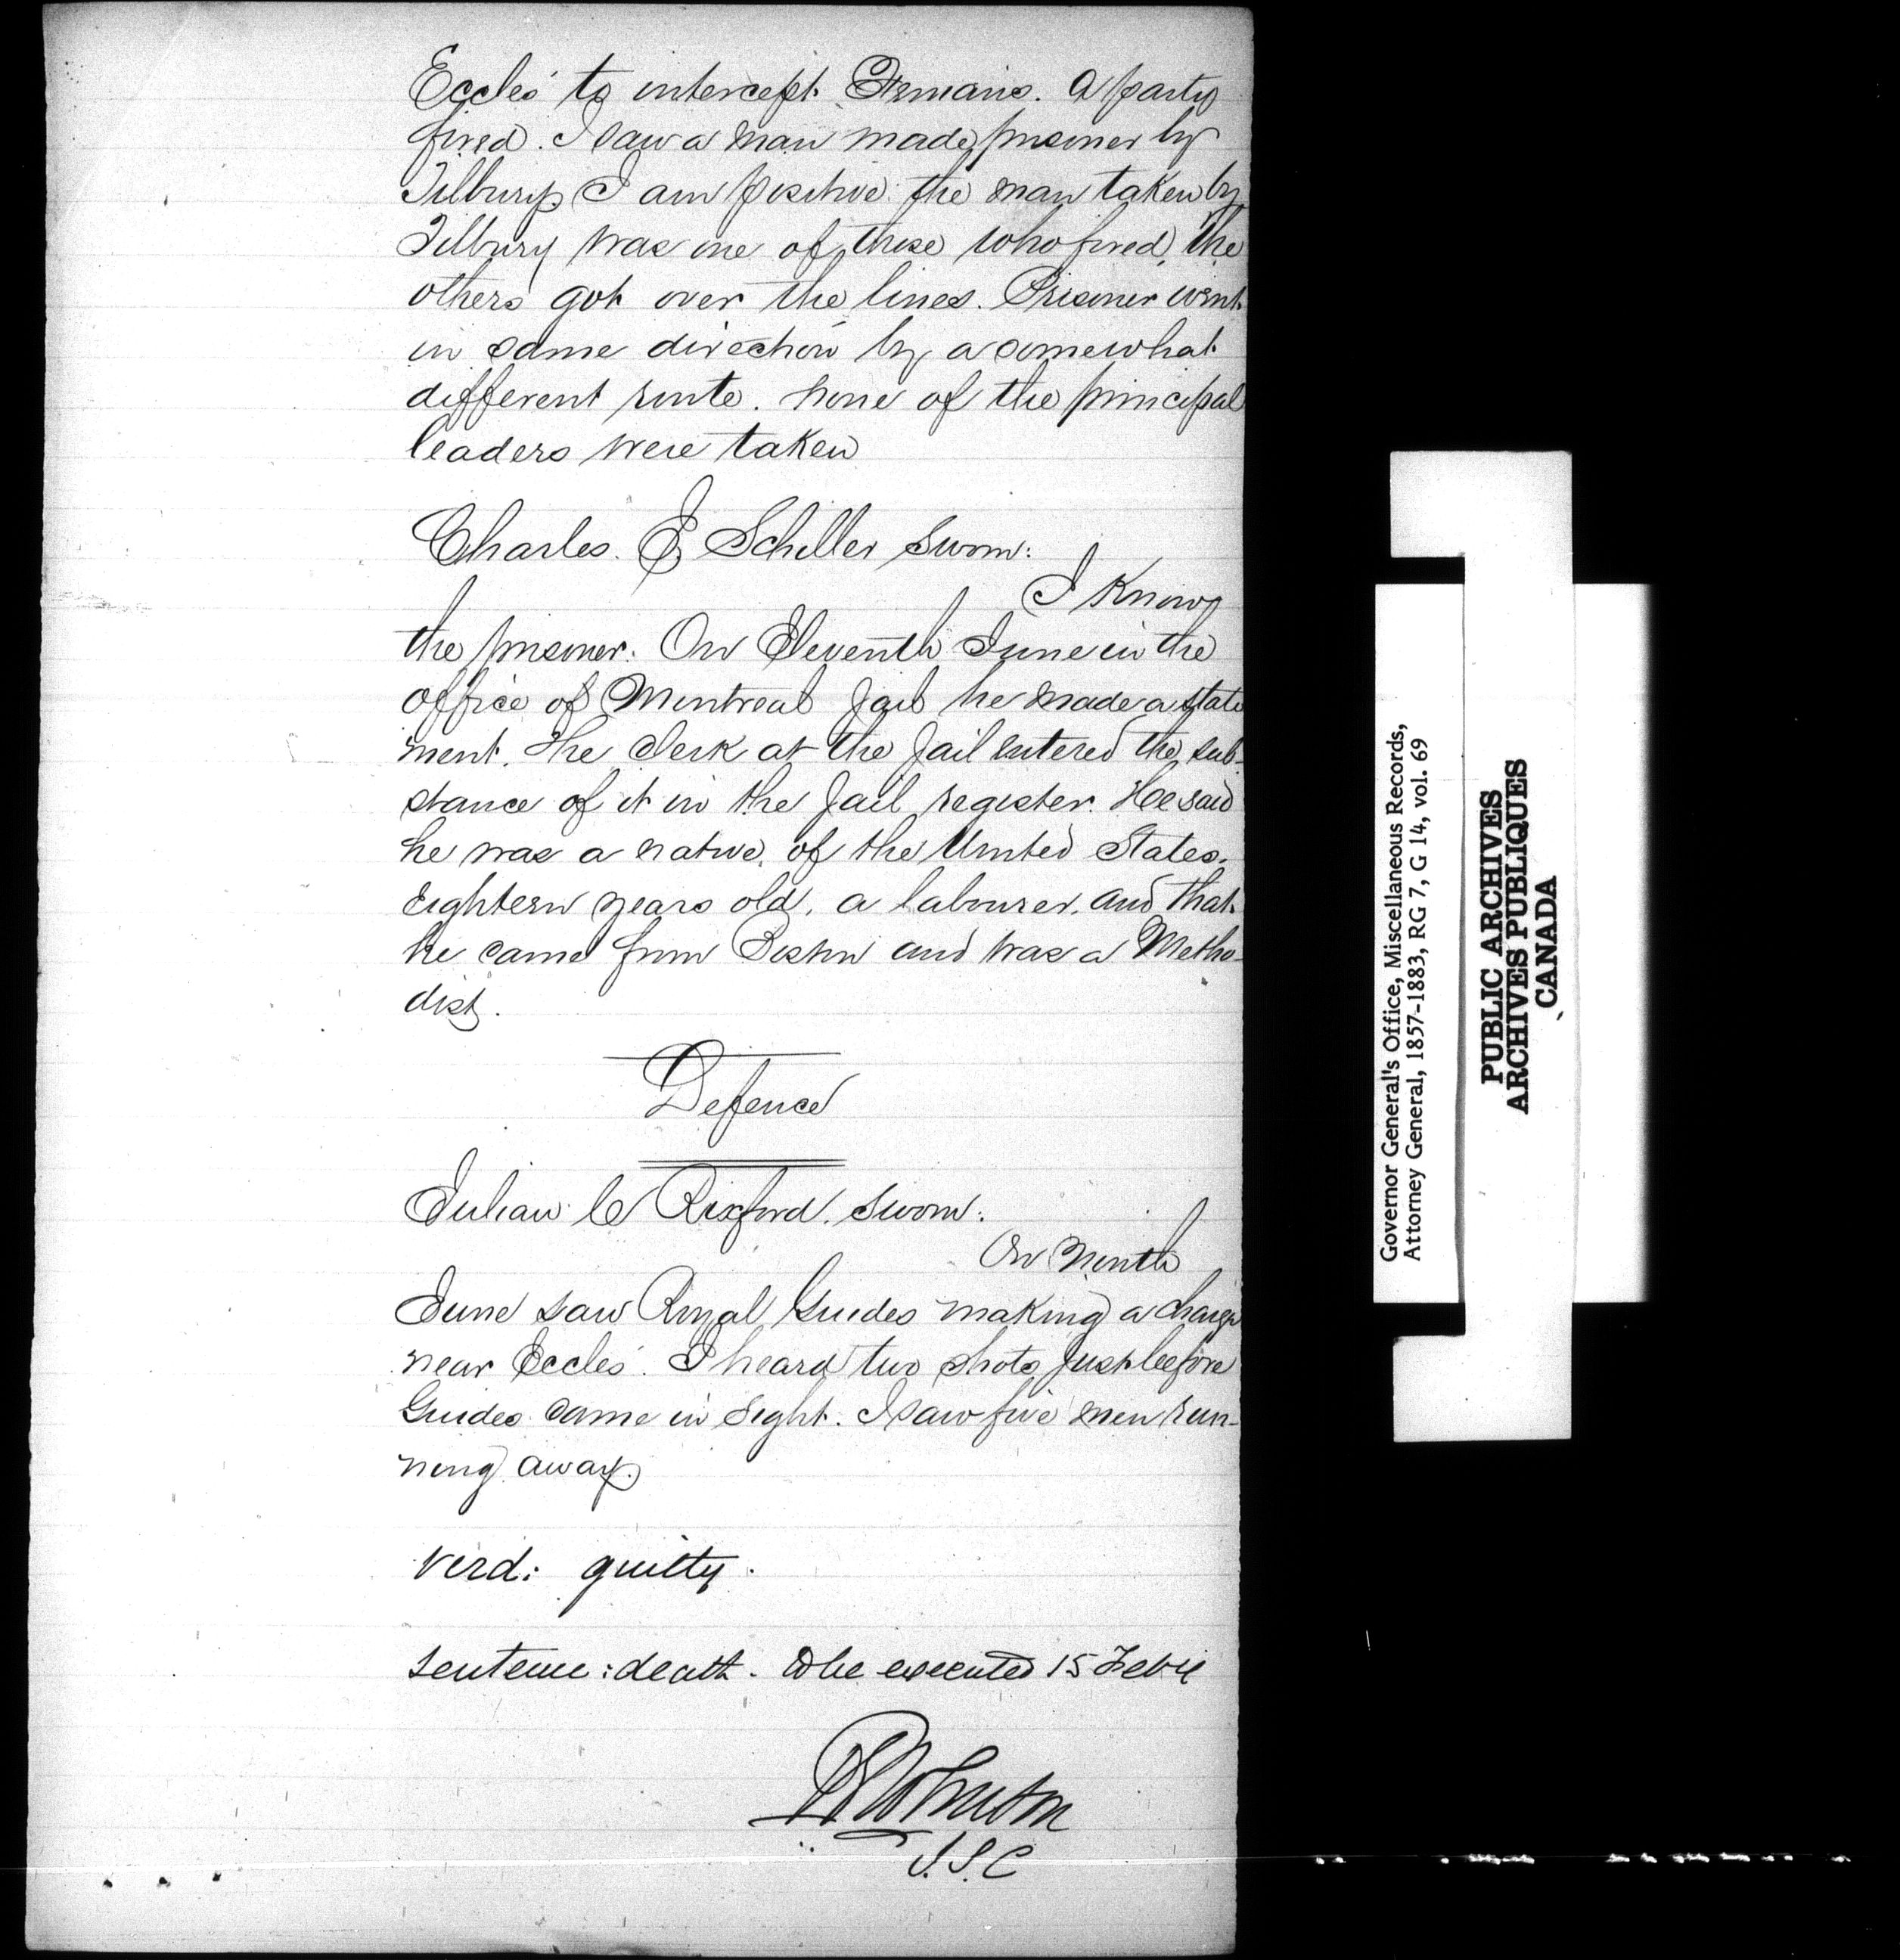 Eccles' to intercept Fenians. A party
fired. I saw a man made prisoner by
Tilbury. I am positive the man taken by
Tilbury was one of those who fired, the
others got over the lines. Prisoner went
in same direction by a somewhat
different route. None of the principal
leaders were taken
Charles. E Schiller sworn:
I know
the prisoner. On Eleventh June in the
office of Montreal Jail he made a state
ment. The Clerk at the Jail entered the sub-
stance of it in the Jail register. He said
he was a native of the United States.
Eighteen years old, a labourer, and that
he came from Boston and was a Metho-
dist.
Defence
Julian C Rixford. sworn:
On Ninth
June saw Royal Guides making a charge
near Eccles'. I heard two shots just before
Guides came in sight. I saw five men run-
ning away.
Verd: guilty.
Sentence: death. To be executed 15 Feby
F Johnson
J.S.C
Governor General's Office, Miscellaneous Records,
Attorney General, 1857-1883, RG 7, G 14, vol. 69
PUBLIC ARCHIVES
ARCHIVES PUBLIQUES
CANADA